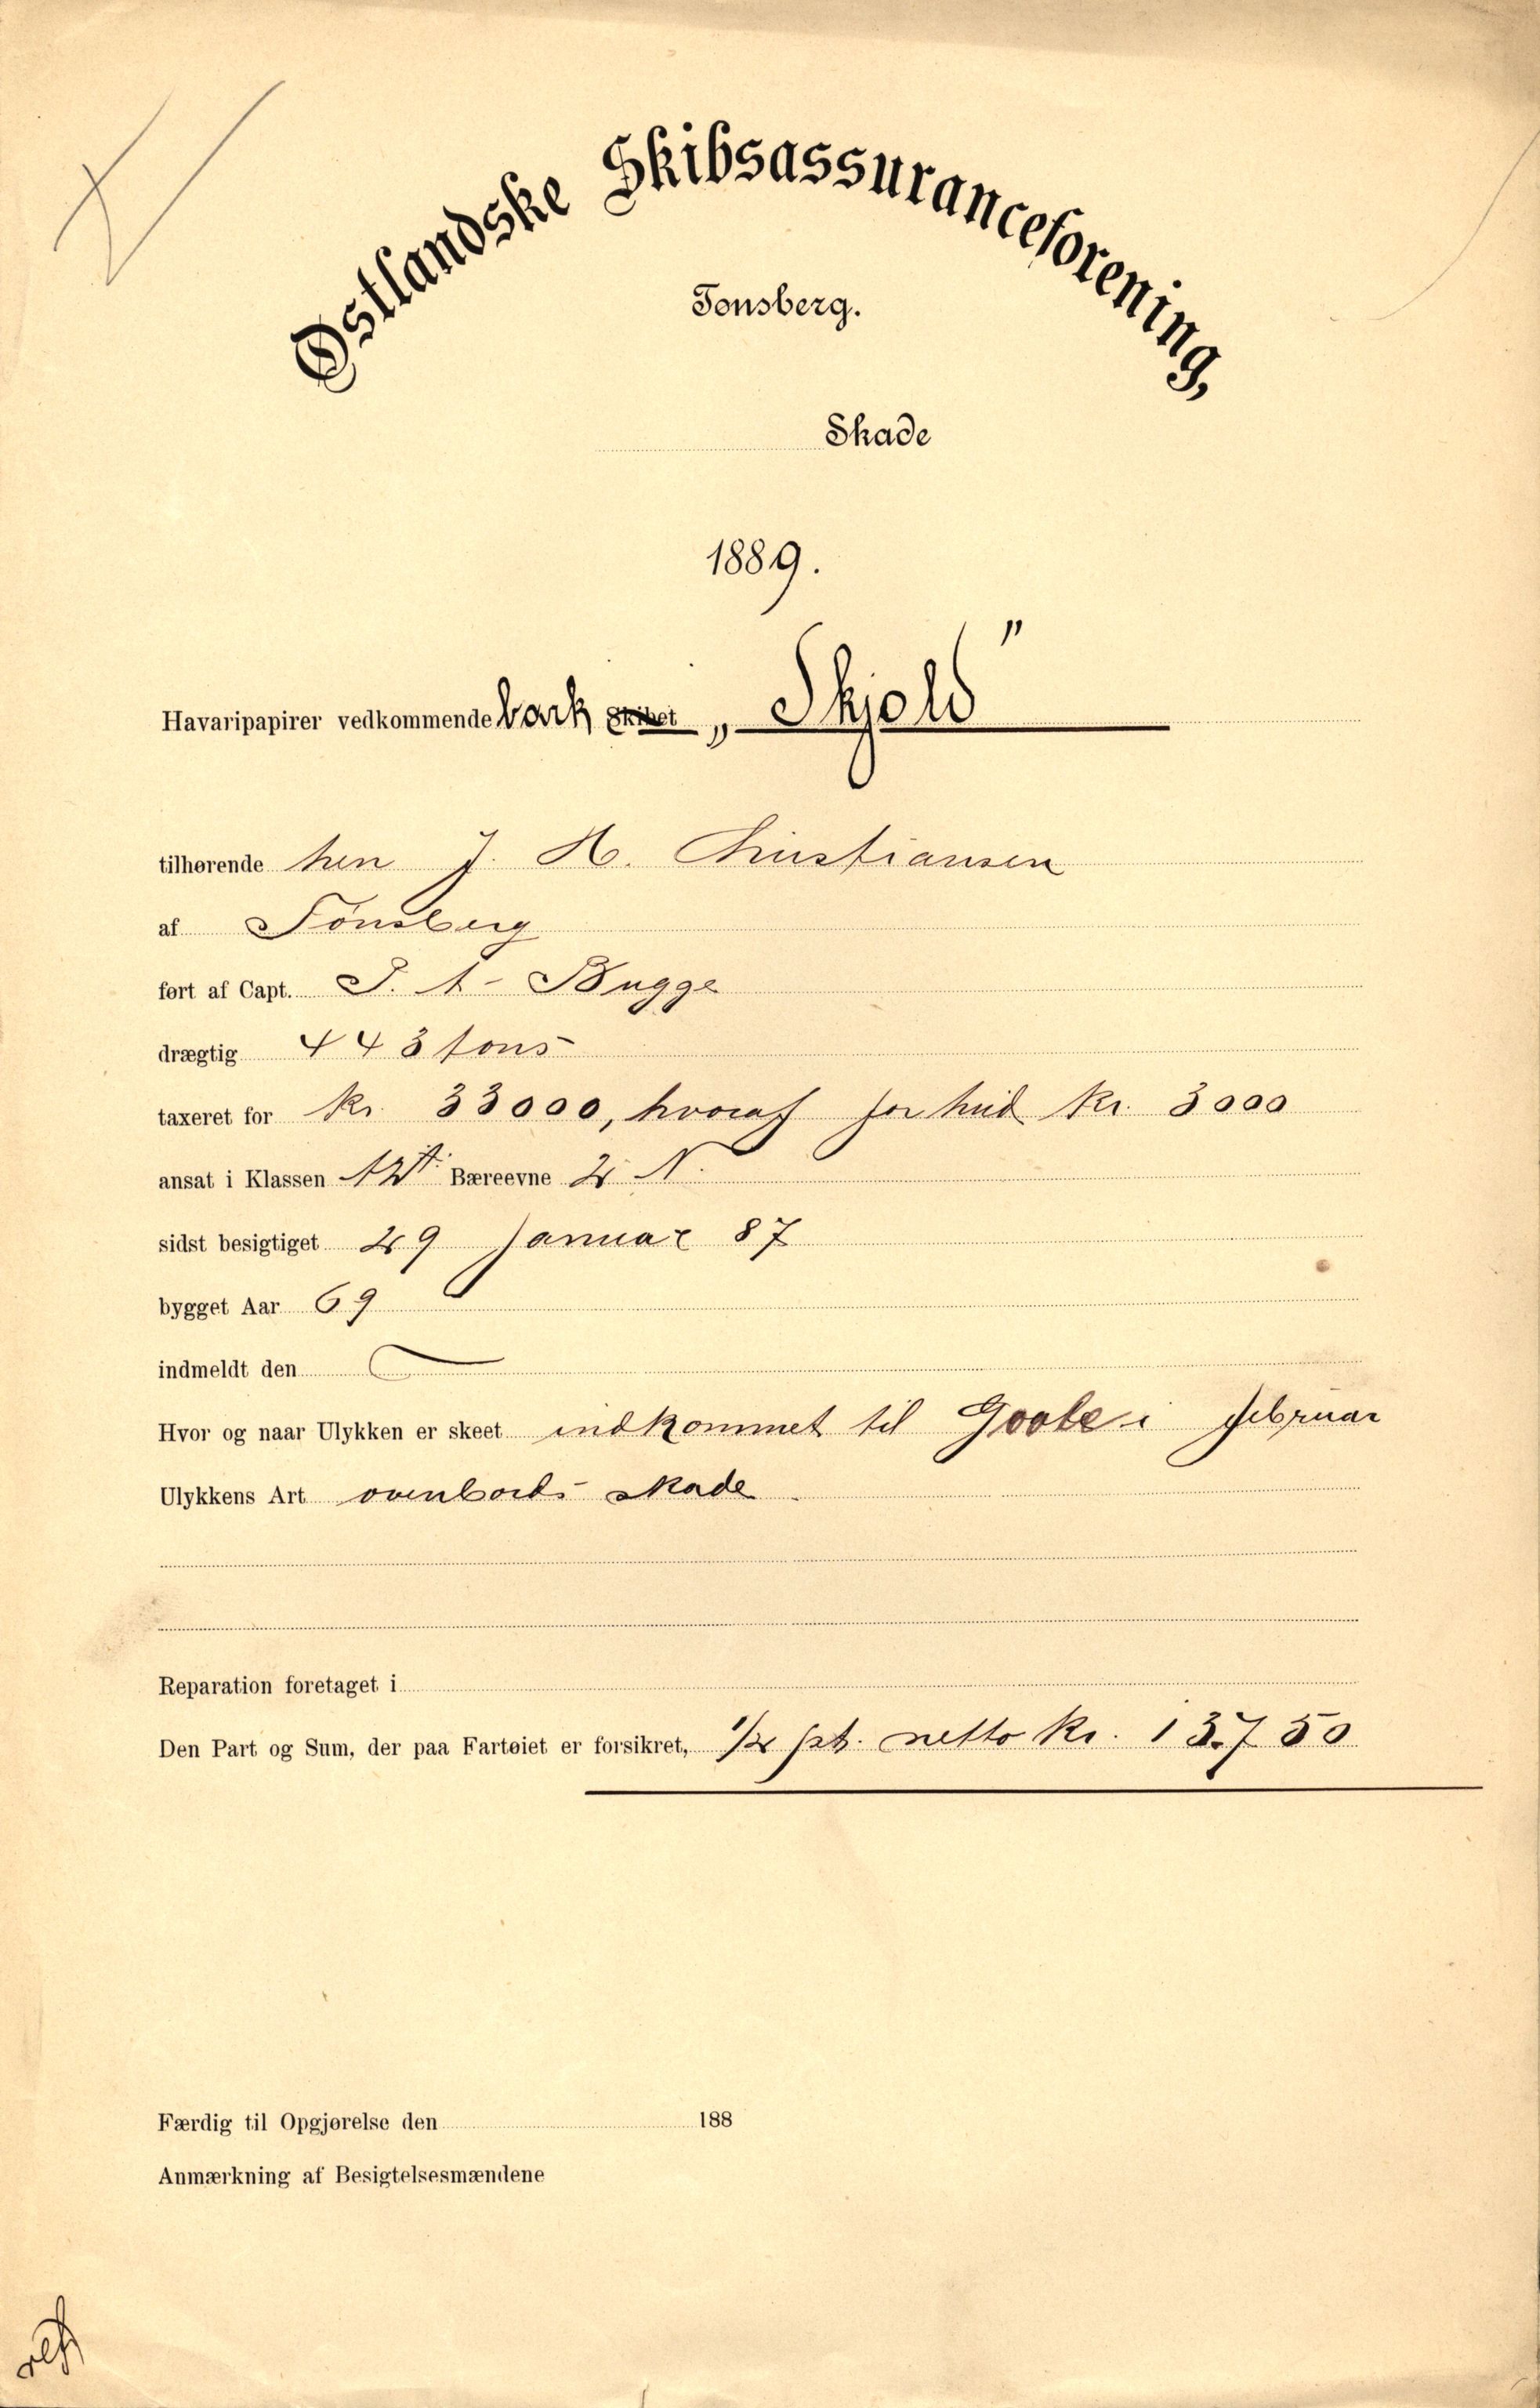 Østlandske Skibsassuranceforening,
Tønsberg.
Skade
1889.
Havaripapirer vedkommende bark Skibet „Skjold"
tilhørende herr J. H. Christiansen
af Tönsberg
ført af Capt. J. A. Bugge
drægtig 443 tons
taxeret for Kr. 33000, hvoraf for hud Kr. 3000
ansat i Klassen Bæreevne 2 N.
sidst besigtiget 29 Januar 87
bygget Aar 69
indmeldt den
Hvor og naar Ulykken er skeet indkommet til Goole i februar
Ulykkens Art ovenbords skade
Reparation foretaget i
Den Part og Sum, der paa Fartøiet er forsikret, 1/2 pt. netto Kr. 13.750
Færdig til Opgjørelse den 188
Anmærkning af Besigtelsesmændene